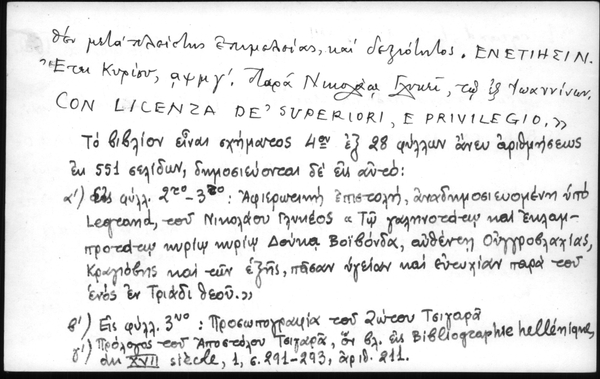 θὲν μετὰ πλείστης ἐπιμελείας, καὶ δεξιότητος. ΕΝΕΤΙΗΣΙΝ.
Ἔτει Κυρίου, αψμγʹ. Παρὰ Νικολάῳ Γλυκεῖ, τῷ ἐξ Ἰωαννίνων.
CON LICENZA DE' SUPERIORI, E PRIVILEGIO,»
Τὸ βιβλίον εἶναι σχήματος 4ου ἐξ 28 φύλλων ἄνευ ἀριθμήσεως
ἐκ 551 σελίδων, δημοσιεύονται δὲ εἰς αὐτό:
α') Εἰς φύλλ. 2το-3το: Ἀφιερωτικὴ ἐπιστολή, ἀναδημοσιευομένη ὑπὸ
Legrand, τοῦ Νικολάου Γλυκέος «Τῷ γαληνοτάτῳ καὶ ἐκλαμ-
προτάτῳ κυρίῳ κυρίῳ Δούκᾳ Βοϊβόνδα, αὐθέντῃ Οὐγγροβλαχίας,
Κραγιόβης καὶ τῶν ἑξῆς, πᾶσαν ὑγείαν καὶ εὐτυχίαν παρὰ τοῦ
ἑνὸς ἐν Τριάδι θεοῦ.»
β') Εἰς φύλλ. 3νο: Προσωπογραφία τοῦ Ζώτου Τσιγαρᾶ
γ') Πρόλογος τοῦ Ἀποστόλου Τσιγαρᾶ, ὃν βλ. εἰς Bibliographie hellénique,
du XVII siècle, 1, σ. 291-293, ἀριθ. 211.